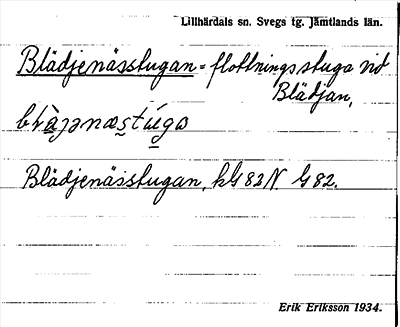 Lillhärdals sn. Svegs tg. Jämtlands län.
Blädjenässtugan = flottningsstuga vid
Blädjan,
Blädjenässtugan, kG 82 N G 82.
Erik Eriksson 1934.